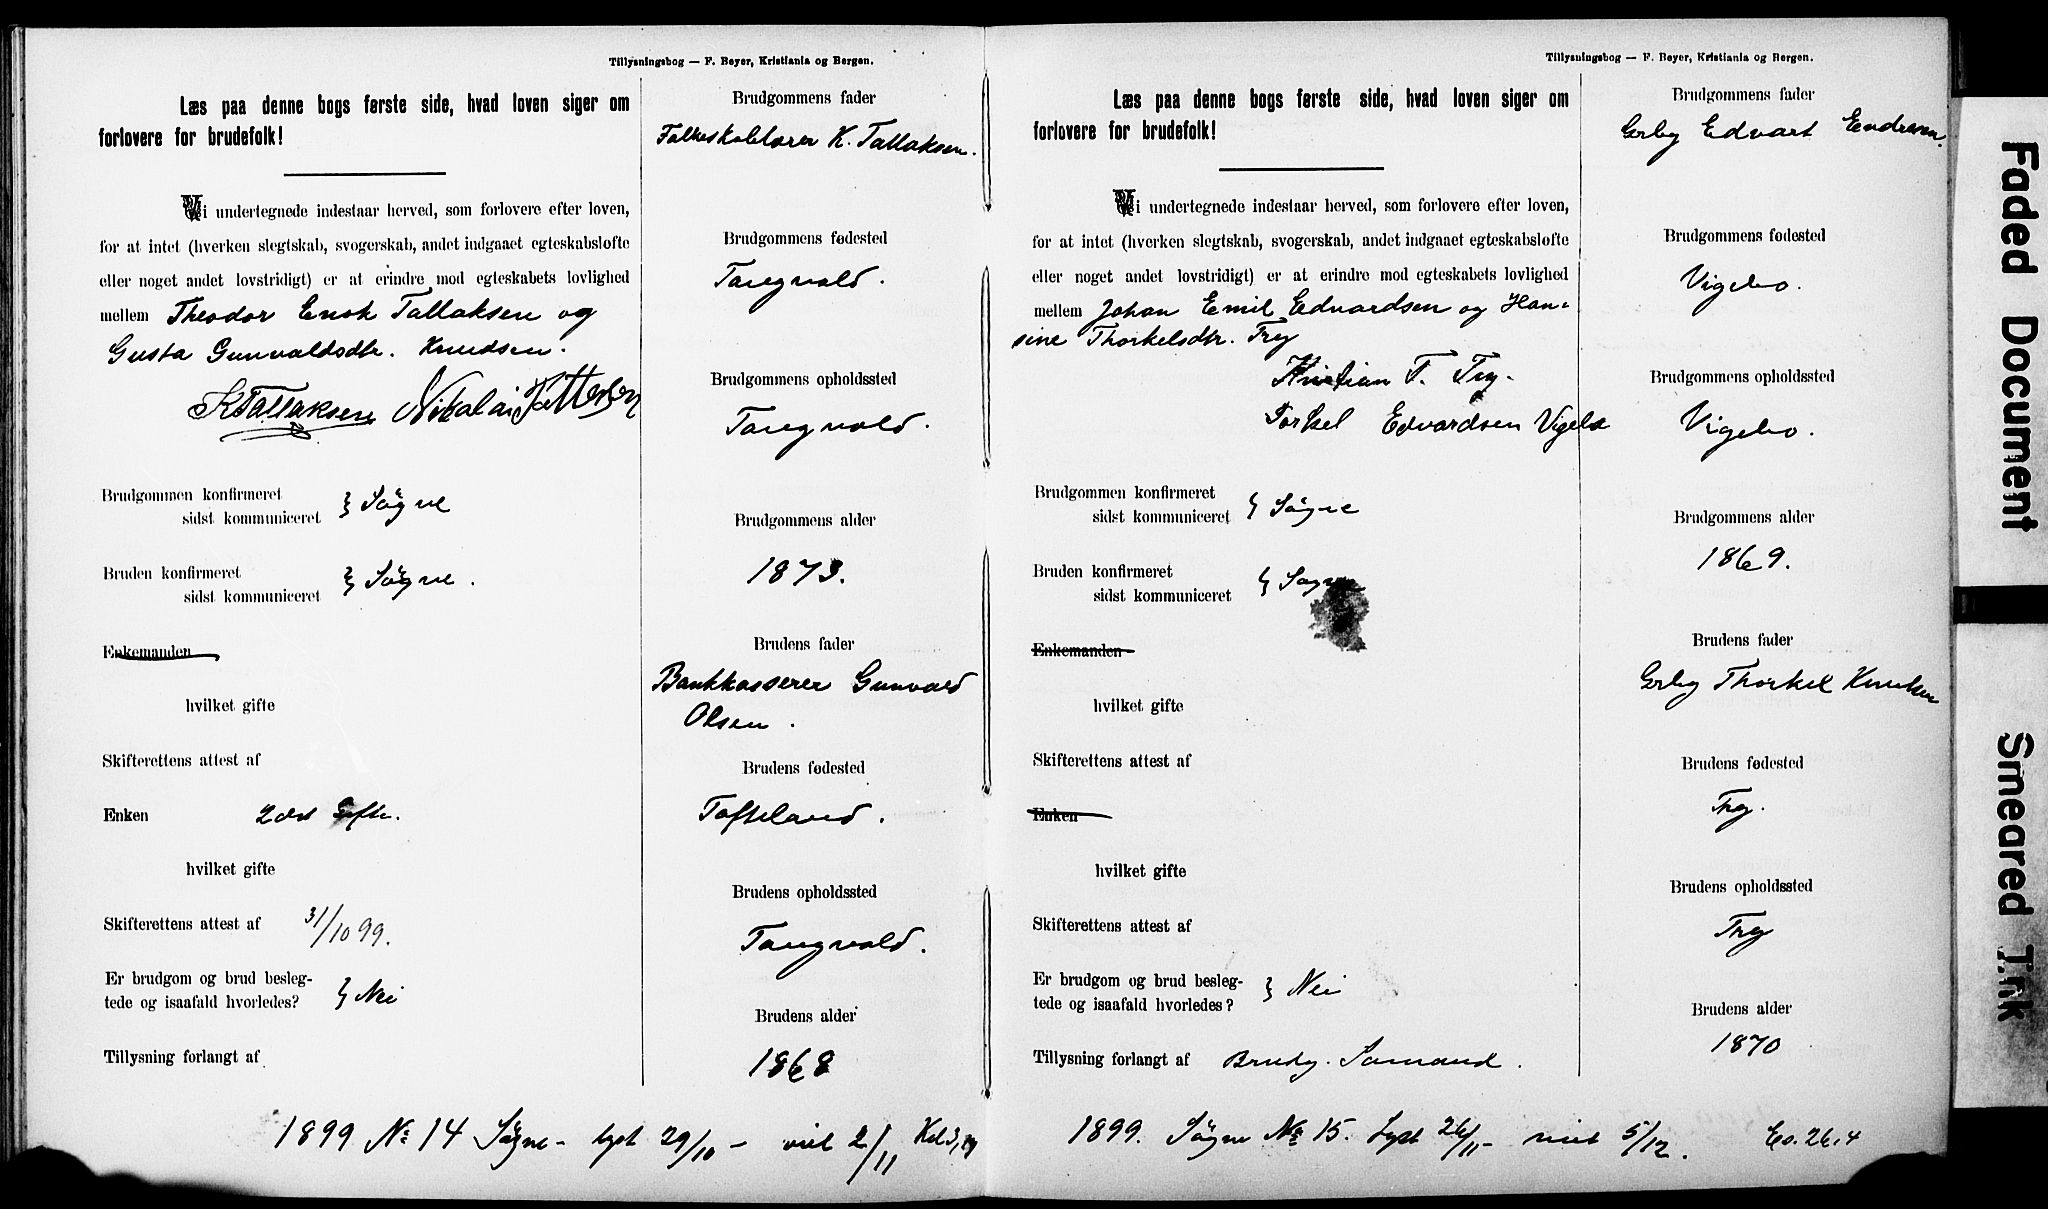 Tillysningsbog — F. Beyer, Kristiania og Bergen.
Læs paa denne bogs første side, hvad loven siger om
forlovere for brudefolk!
Vi undertegnede indestaar herved, som forlovere efter loven,
for at intet (hverken slegtskab, svogerskab, andet indgaaet egteskabsløfte
eller noget andet lovstridigt) er at erindre mod egteskabets lovlighed
mellem Theodor Enok Tallaksen og
Gusta Gunvaldsdtr. Knudsen.
KTallaksen Nikolai Pettersen
Brudgommen konfirmeret
sidst kommuniceret } Søgne
Bruden konfirmeret
sidst kommuniceret } Søgne.
Enkemanden
hvilket gifte
Skifterettens attest af
Enken 2det Gifte.
hvilket gifte
Skifterettens attest af 31/10 99.
Er brudgom og brud besleg-
tede og isaafald hvorledes? } Nei
Tillysning forlangt af
Brudgommens fader
Folkeskolelærer K. Tallaksen.
Brudgommens fødested
Tangvald.
Brudgommens opholdssted
Tangvald.
Brudgommens alder
1873.
Brudens fader
Bankkasserer Gunvald
Olsen.
Brudens fødested
Tofteland.
Brudens opholdssted
Tangvald.
Brudens alder
1868
1899 No 14 Søgne - lyst 29/10 - viet 2/11
Tillysningsbog — F. Beyer, Kristiania og Bergen.
Læs paa denne bogs første side, hvad loven siger om
forlovere for brudefolk!
Vi undertegnede indestaar herved, som forlovere efter loven,
for at intet (hverken slegtskab, svogerskab, andet indgaaet egteskabsløfte
eller noget andet lovstridigt) er at erindre mod egteskabets lovlighed
mellem Johan Emil Edvardsen og Han-
sine Thorkelsdtr. Try
Kristian T. Try.
Torkel Edvardsen Vigebo
Brudgommen konfirmeret
sidst kommuniceret } Søgne
Bruden konfirmeret
sidst kommuniceret } Søgne
Enkemanden
hvilket gifte
Skifterettens attest af
Enken
hvilket gifte
Skifterettens attest af
Er brudgom og brud besleg-
tede og isaafald hvorledes? } Nei
Tillysning forlangt af Brudg. Lomand.
Brudgommens fader
Grbg Edvart Endresen.
Brudgommens fødested
Vigebo.
Brudgommens opholdssted
Vigebo.
Brudgommens alder
1869.
Brudens fader
Grbg Thorkel Knutsen
Brudens fødested
Try.
Brudens opholdssted
Try
Brudens alder
1870
1899. Søgne No 15. Lyst 26/11 - viet 5/12. Ev. 26.4
Faded Document
Smeared Ink